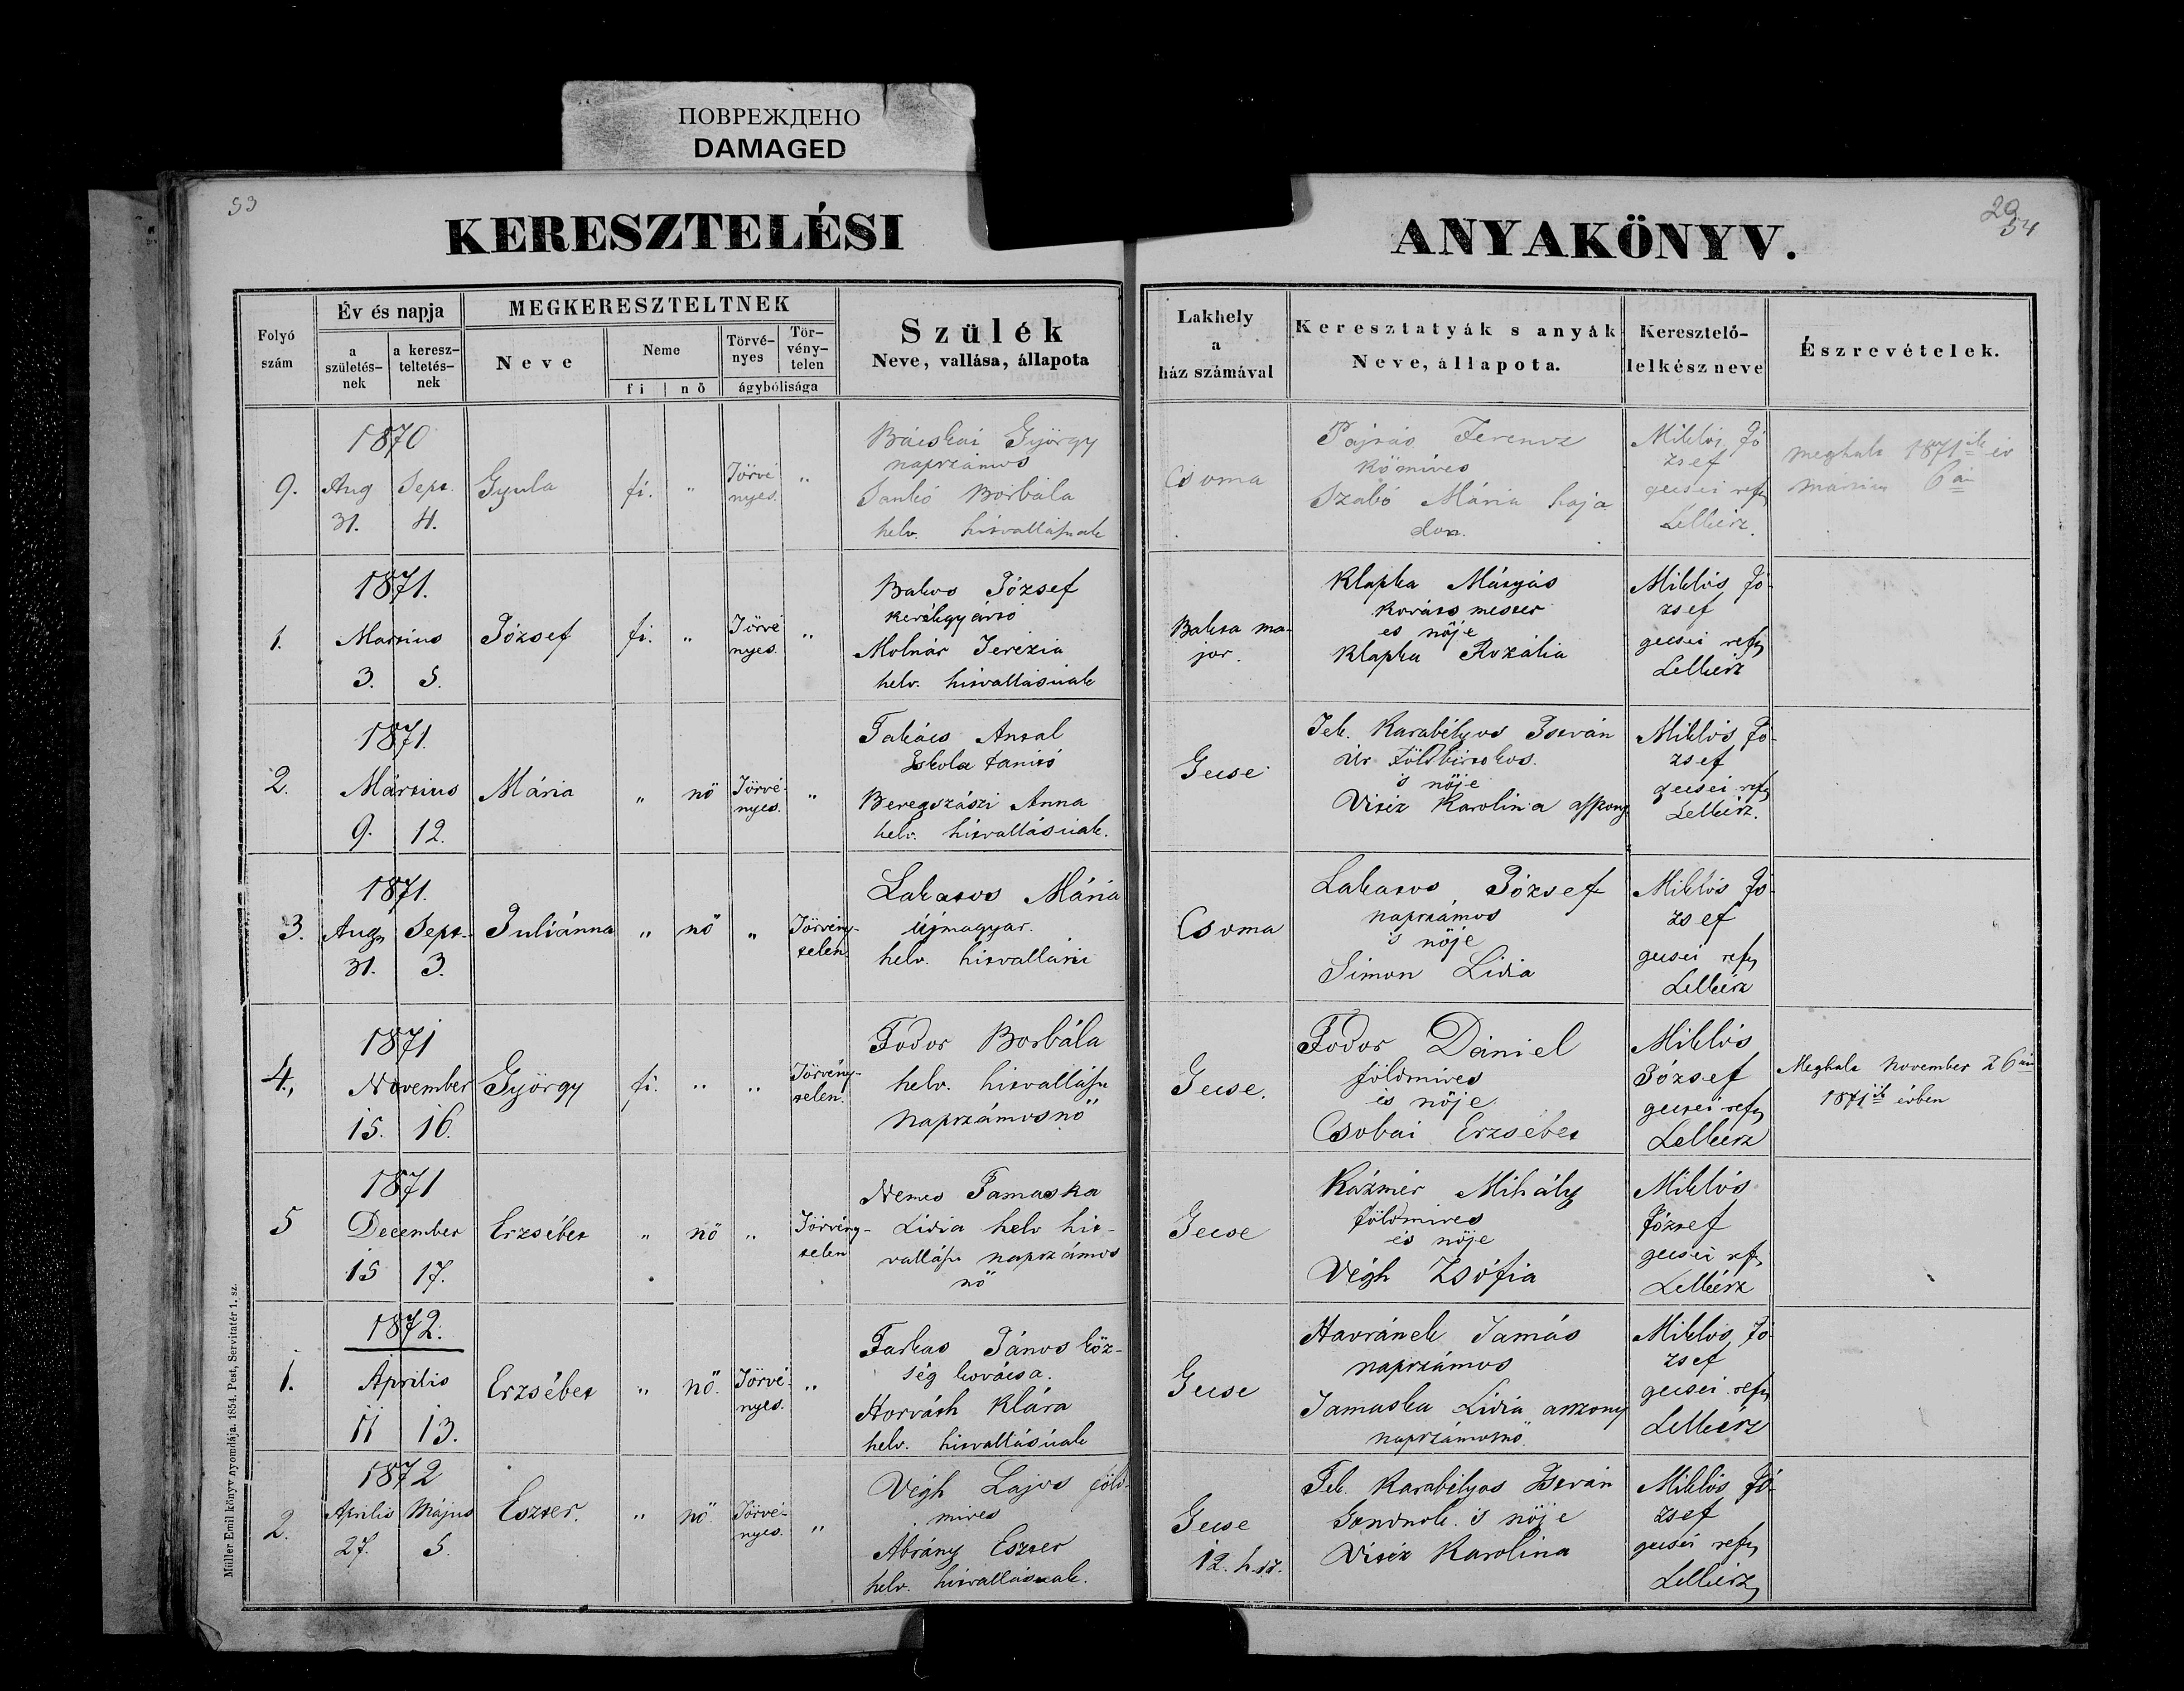 ПОВРЕЖДЕНО
DAMAGED
53
29
54
KERESZTELÉSI
ANYAKÖNYV.
Folyó szám
Év és napja
a születés-nek
a keresz-teltetés-nek
MEGKERESZTELTNEK
Neve
Neme
fi
nő
Törvé-nyes
Tör-vény-telen
ágybólisága
Szülék
Neve, vallása, állapota
Lakhely
a
ház számával
Keresztatyák s anyák
Neve, állapota.
Keresztelő-
lelkész neve
Észrevételek.
1870
9. Aug 31. Sept. 4. Gyula fi. " Törvé nyes. "
Bácskai György
napszámos
Sankó Borbála
helv. hitvallásuak
Csoma
Pajzás Ferencz
kőmíves
Szabó Mária haja
don.
Miklós Jó
zsef
gecsei ref.
Lelkész.
meghalt 1871ik év
márcziu 6án
1871.
1. Martius 3. 5. József fi. " Törvé nyes. "
Bakos József
kerékgyártó
Molnár Terézia
helv. hitvallásúak
Baksa ma-
jor.
Klapka Mátyás
kovács mester
és nője
Klapka Rozália
Miklós Jó-
zsef
gecsei ref.
Lelkész
1871.
2. Mártius 9. 12. Mária " nő Törvé-nyes. "
Takács Antal
Iskola tanitó
Beregszászi Anna
helv. hitvallásúak.
Gecse
Tek. Karabélyos István
úr Földbirtokos.
's nője
Vitéz Karolina asszony
Miklós Jó-
zsef
gecsei ref.
Lelkész.
1871.
3. Aug. 31. Sept. 3. Juliánna " nő " Törvény-telen.
Lakatos Mária
újmagyar.
helv. hitvallásu
Csoma
Lakatos József
napszámos
's nője
Simon Lidia
Miklós Jó-
zsef
gecsei ref.
Lelkész
1871
4., November 15. 16. György fi. " " Törvény-telen.
Fodor Borbála
helv. hitvallásu
Napszámosnő
Gecse.
Fodor Dániel
földmíves
és nője
Csobai Erzsébet
Miklós
József
gecsei ref.
Lelkész
Meghalt November 26án
1871ik évben
1871
5 December 15 17. Erzsébet " nő " Törvény-telen
Nemes Tamaska
Lidia helv hit-
vallásu napszámos
nő
Gecse
Kázmér Mihály
földmives
és nője
Végh Zsófia
Miklós
József
gecsei ref.
Lelkész
1872.
1. Aprilis 11 13. Erzsébet " nő. Törvé-nyes. "
Farkas János köz-
ség kovácsa.
Horváth Klára
helv. hitvallásúak
Gecse
Havránek Tamás
napszámos
Tamaska Lidia asszony
napszámosnő
Miklós Jó-
zsef
gecsei ref.
Lelkész
1872
2. Aprilis 27. Május 5. Eszter. " nő. Törvé-nyes. "
Végh Lajos föld-
mives
Ábrány Eszter
helv. hitvallásuak.
Gecse
12. h.sz.
Tek. Karabélyos István
Gondnok. 's nője
Vitéz Karolina
Miklós Jó-
zsef
gecsei ref.
Lelkész
Müller Emil könyvnyomdája. 1854. Pest, Servitatér 1. sz.